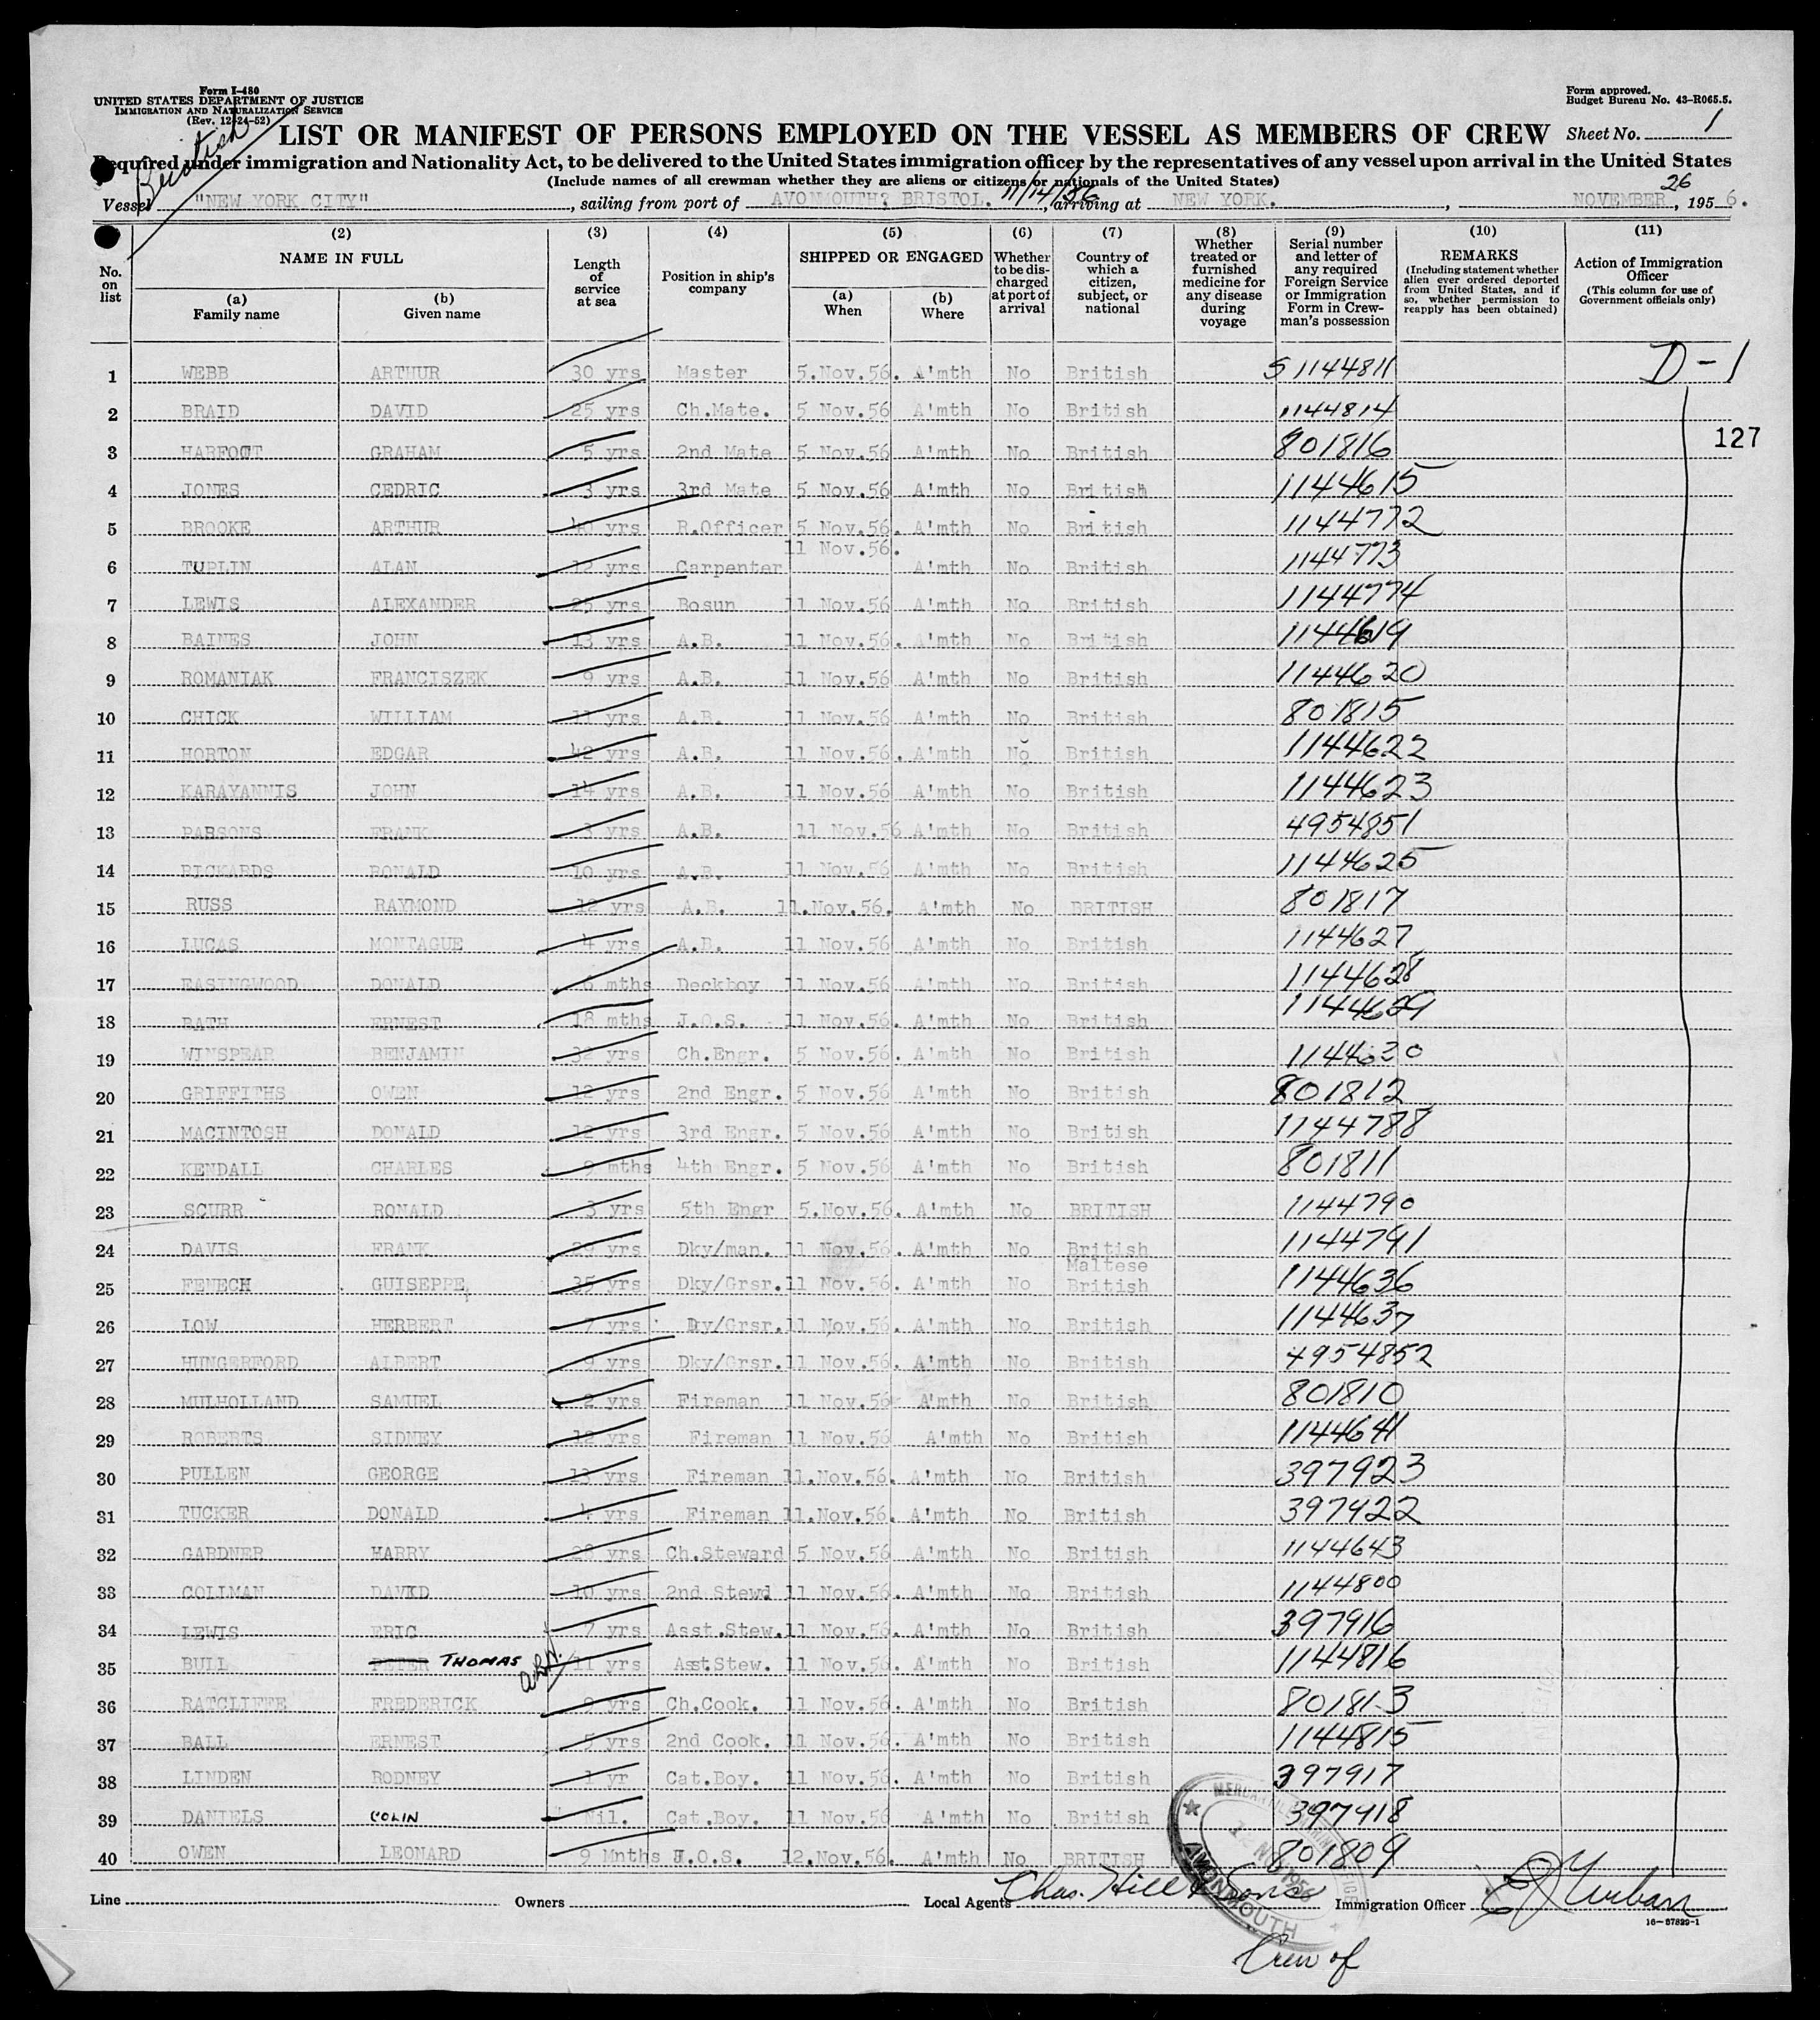 Form I-480
UNITED STATES DEPARTMENT OF JUSTICE
IMMIGRATION AND NATURALIZATION SERVICE
(Rev. 12-24-52)
Form approved.
Budget Bureau No. 43-R065.5.
British
LIST OR MANIFEST OF PERSONS EMPLOYED ON THE VESSEL AS MEMBERS OF CREW
Sheet No. 1
Required under immigration and Nationality Act, to be delivered to the United States immigration officer by the representatives of any vessel upon arrival in the United States
(Include names of all crewman whether they are aliens or citizens or nationals of the United States)
Vessel "NEW YORK CITY", sailing from port of AVONMOUTH? BRISTOL. 11/14/56, arriving at NEW YORK., NOVEMBER 26, 1956.
No. on list
(2) NAME IN FULL
(a) Family name
(b) Given name
(3) Length of service at sea
(4) Position in ship's company
(5) SHIPPED OR ENGAGED
(a) When
(b) Where
(6) Whether to be discharged at port of arrival
(7) Country of which a citizen, subject, or national
(8) Whether treated or furnished medicine for any disease during voyage
(9) Serial number and letter of any required Foreign Service or Immigration Form in Crewman's possession
(10) REMARKS (Including statement whether alien ever ordered deported from United States, and if so, whether permission to reapply has been obtained)
(11) Action of Immigration Officer (This column for use of Government officials only)
1 WEBB ARTHUR 30 yrs Master 5.Nov.56. A'mth No British S 1144811 D-1
2 BRAID DAVID 25 yrs Ch.Mate. 5 Nov.56 A'mth No British 1144814
127
3 HARFOOT GRAHAM 5 yrs 2nd Mate 5 Nov.56 A'mth No British 801816
4 JONES CEDRIC 3 yrs 3rd Mate 5 Nov.56 A'mth No British 1144615
5 BROOKE ARTHUR 40 yrs R.Officer 5 Nov.56. A'mth No British 1144772
11 Nov.56.
6 TUPLIN ALAN 12 yrs Carpenter A'mth No British 1144773
7 LEWIS ALEXANDER 25 yrs Bosun 11 Nov.56 A'mth No British 1144774
8 BAINES JOHN 13 yrs A.B. 11 Nov.56. A'mth No British 1144619
9 ROMANIAK FRANCISZEK 9 yrs A.B. 11 Nov.56 A'mth No British 1144620
10 CHICK WILLIAM 11 yrs A.B. 11 Nov.56 A'mth No British 801815
11 HORTON EDGAR 42 yrs A.B. 11 Nov.56. A'mth No British 1144622
12 KARAYANNIS JOHN 14 yrs A.B. 11 Nov.56 A'mth No British 1144623
13 PARSONS FRANK 3 yrs A.B. 11 Nov.56 A'mth No British 4954851
14 RICKARDS RONALD 10 yrs A.B. 11 Nov.56 A'mth No British 1144625
15 RUSS RAYMOND 12 yrs A.B. 11.Nov.56. A'mth No BRITISH 801817
16 LUCAS MONTAGUE 4 yrs A.B. 11 Nov.56 A'mth No British 1144627
17 EASINGWOOD DONALD 6 mths Deckboy 11 Nov.56 A'mth No British 1144628
18 BATH ERNEST 18 mths J.O.S. 11 Nov.56. A'mth No British 1144629
19 WINSPEAR BENJAMIN 32 yrs Ch.Engr. 5 Nov.56. A'mth No British 1144630
20 GRIFFITHS OWEN 12 yrs 2nd Engr. 5 Nov.56 A'mth No British 801812
21 MACINTOSH DONALD 12 yrs 3rd Engr. 5 Nov.56 A'mth No British 1144788
22 KENDALL CHARLES 9 mths 4th Engr. 5 Nov.56 A'mth No British 801811
23 SCURR RONALD 3 yrs 5th Engr 5.Nov.56. A'mth No BRITISH 1144790
24 DAVIS FRANK yrs Dky/man. 11 Nov.56. A'mth No British 1144791
Maltese
25 FENECH GUISEPPE 35 yrs Dky/Grsr. 11 Nov.56. A'mth No British 1144636
26 LOW HERBERT 7 yrs Dy/Grsr. 11 Nov.56. A'mth No British 1144637
27 HUNGERFORD ALBERT 9 yrs Dky/Grsr. 11 Nov.56. A'mth No British 4954852
28 MULHOLLAND SAMUEL 2 yrs Fireman 11 Nov.56 A'mth No British 801810
29 ROBERTS SIDNEY 12 yrs Fireman 11 Nov.56 A'mth No British 1144641
30 PULLEN GEORGE 13 yrs Fireman 11.Nov.56. A'mth No British 397923
31 TUCKER DONALD 4 yrs Fireman 11.Nov.56. A'mth No British 397922
32 GARDNER HARRY 28 yrs Ch.Steward 5 Nov.56 A'mth No British 1144643
33 COLLMAN DAVID 10 yrs 2nd Stewd 11 Nov.56. A'mth No British 1144800
34 LEWIS ERIC 7 yrs Asst.Stew. 11 Nov.56. A'mth No British 397916
35 BULL PETER THOMAS 11 yrs Asst.Stew. 11 Nov.56. A'mth No British 1144816
36 RATCLIFFE FREDERICK 9 yrs Ch.Cook. 11 Nov.56. A'mth No British 801813
37 BALL ERNEST 5 yrs 2nd Cook. 11 Nov.56. A'mth No British 1144815
38 LINDEN RODNEY 1 yr Cat.Boy. 11 Nov.56. A'mth No British 397917
39 DANIELS COLIN Nil. Cat.Boy. 11 Nov.56 A'mth No British 397918
40 OWEN LEONARD 9 Mnths J.O.S. 12.Nov.56. A'mth No BRITISH 801809
AVONMOUTH
Line
Owners
Local Agents Chas. Hill & Sons
Immigration Officer
16-67829-1
Crew of